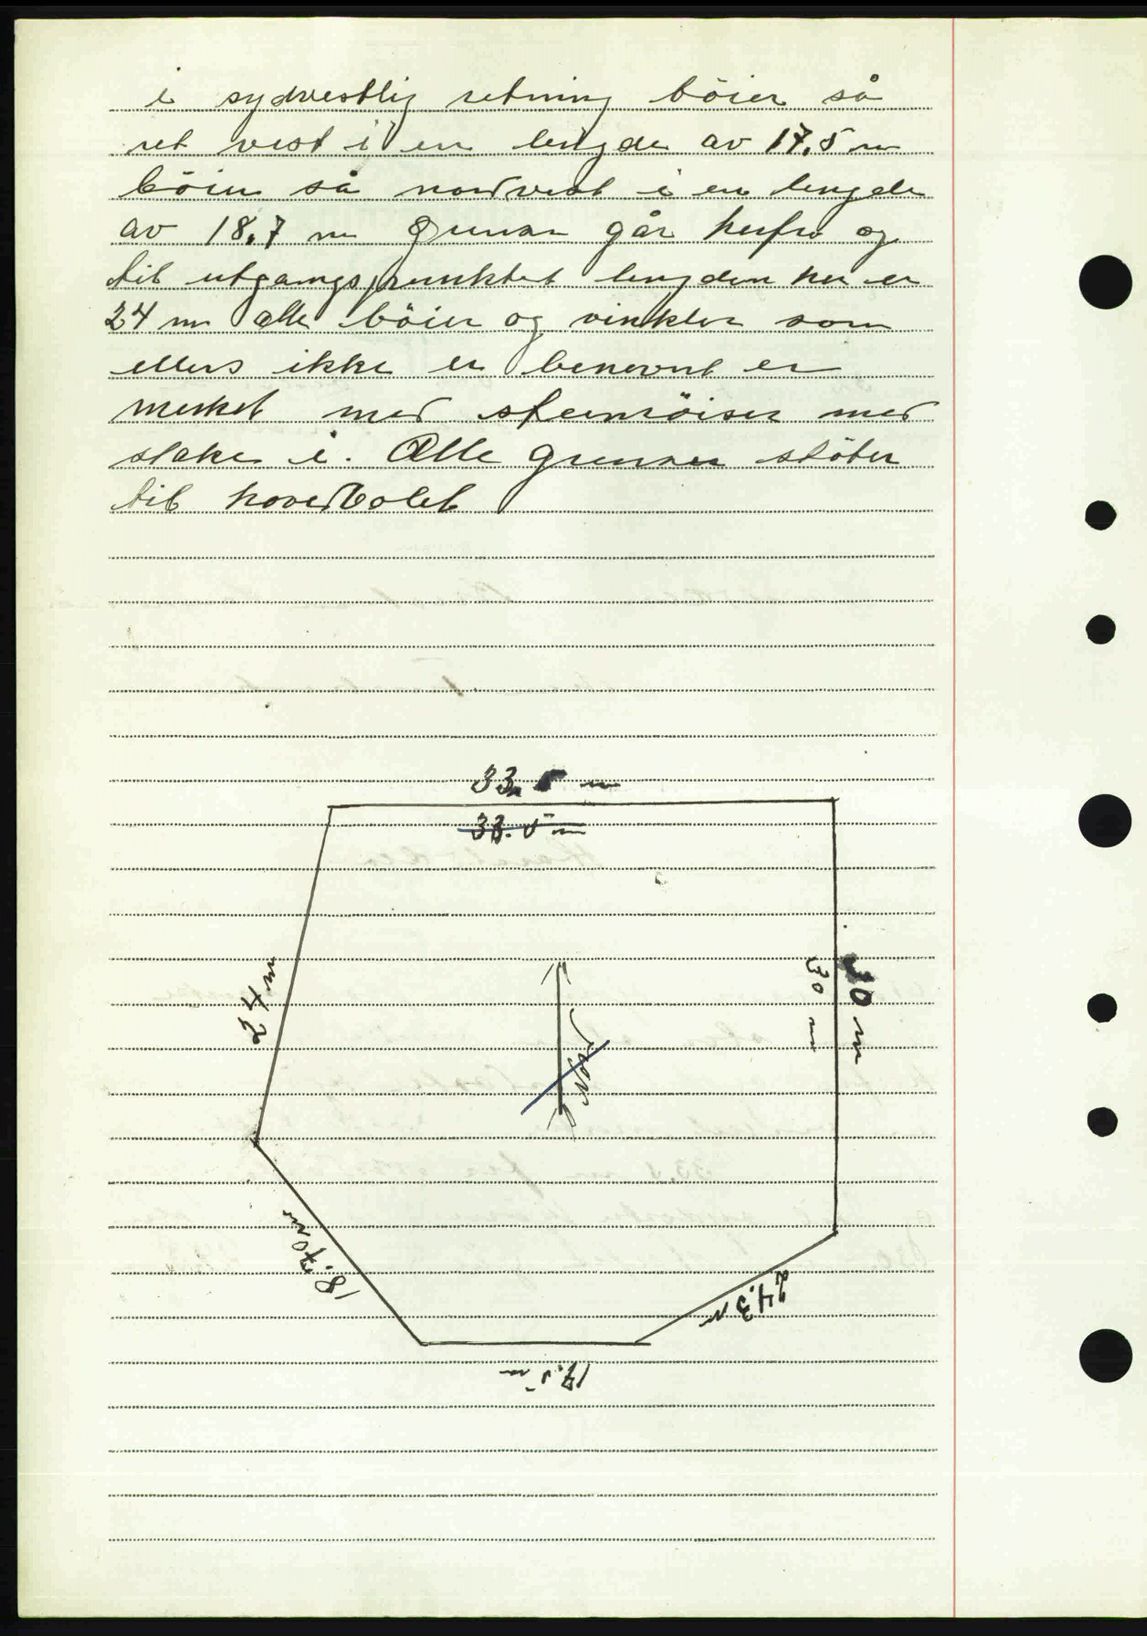 i sydvestlig retning böier så
ret vest i en lengde av 17,5 m
böier så nordvest i en lengde
av 18,7 m grensen går herfra og
til utgangspunktet lengden her er
24 m alle böier og vinkler som
ellers ikke er benevnt er
merket med steinröiser med
stake i. Alle grenser stöter
til hovedbolet
33.5 m
33.5 m
24 m
30 m
30 m
Nord
18.70 m
24.3 m
17.5 m